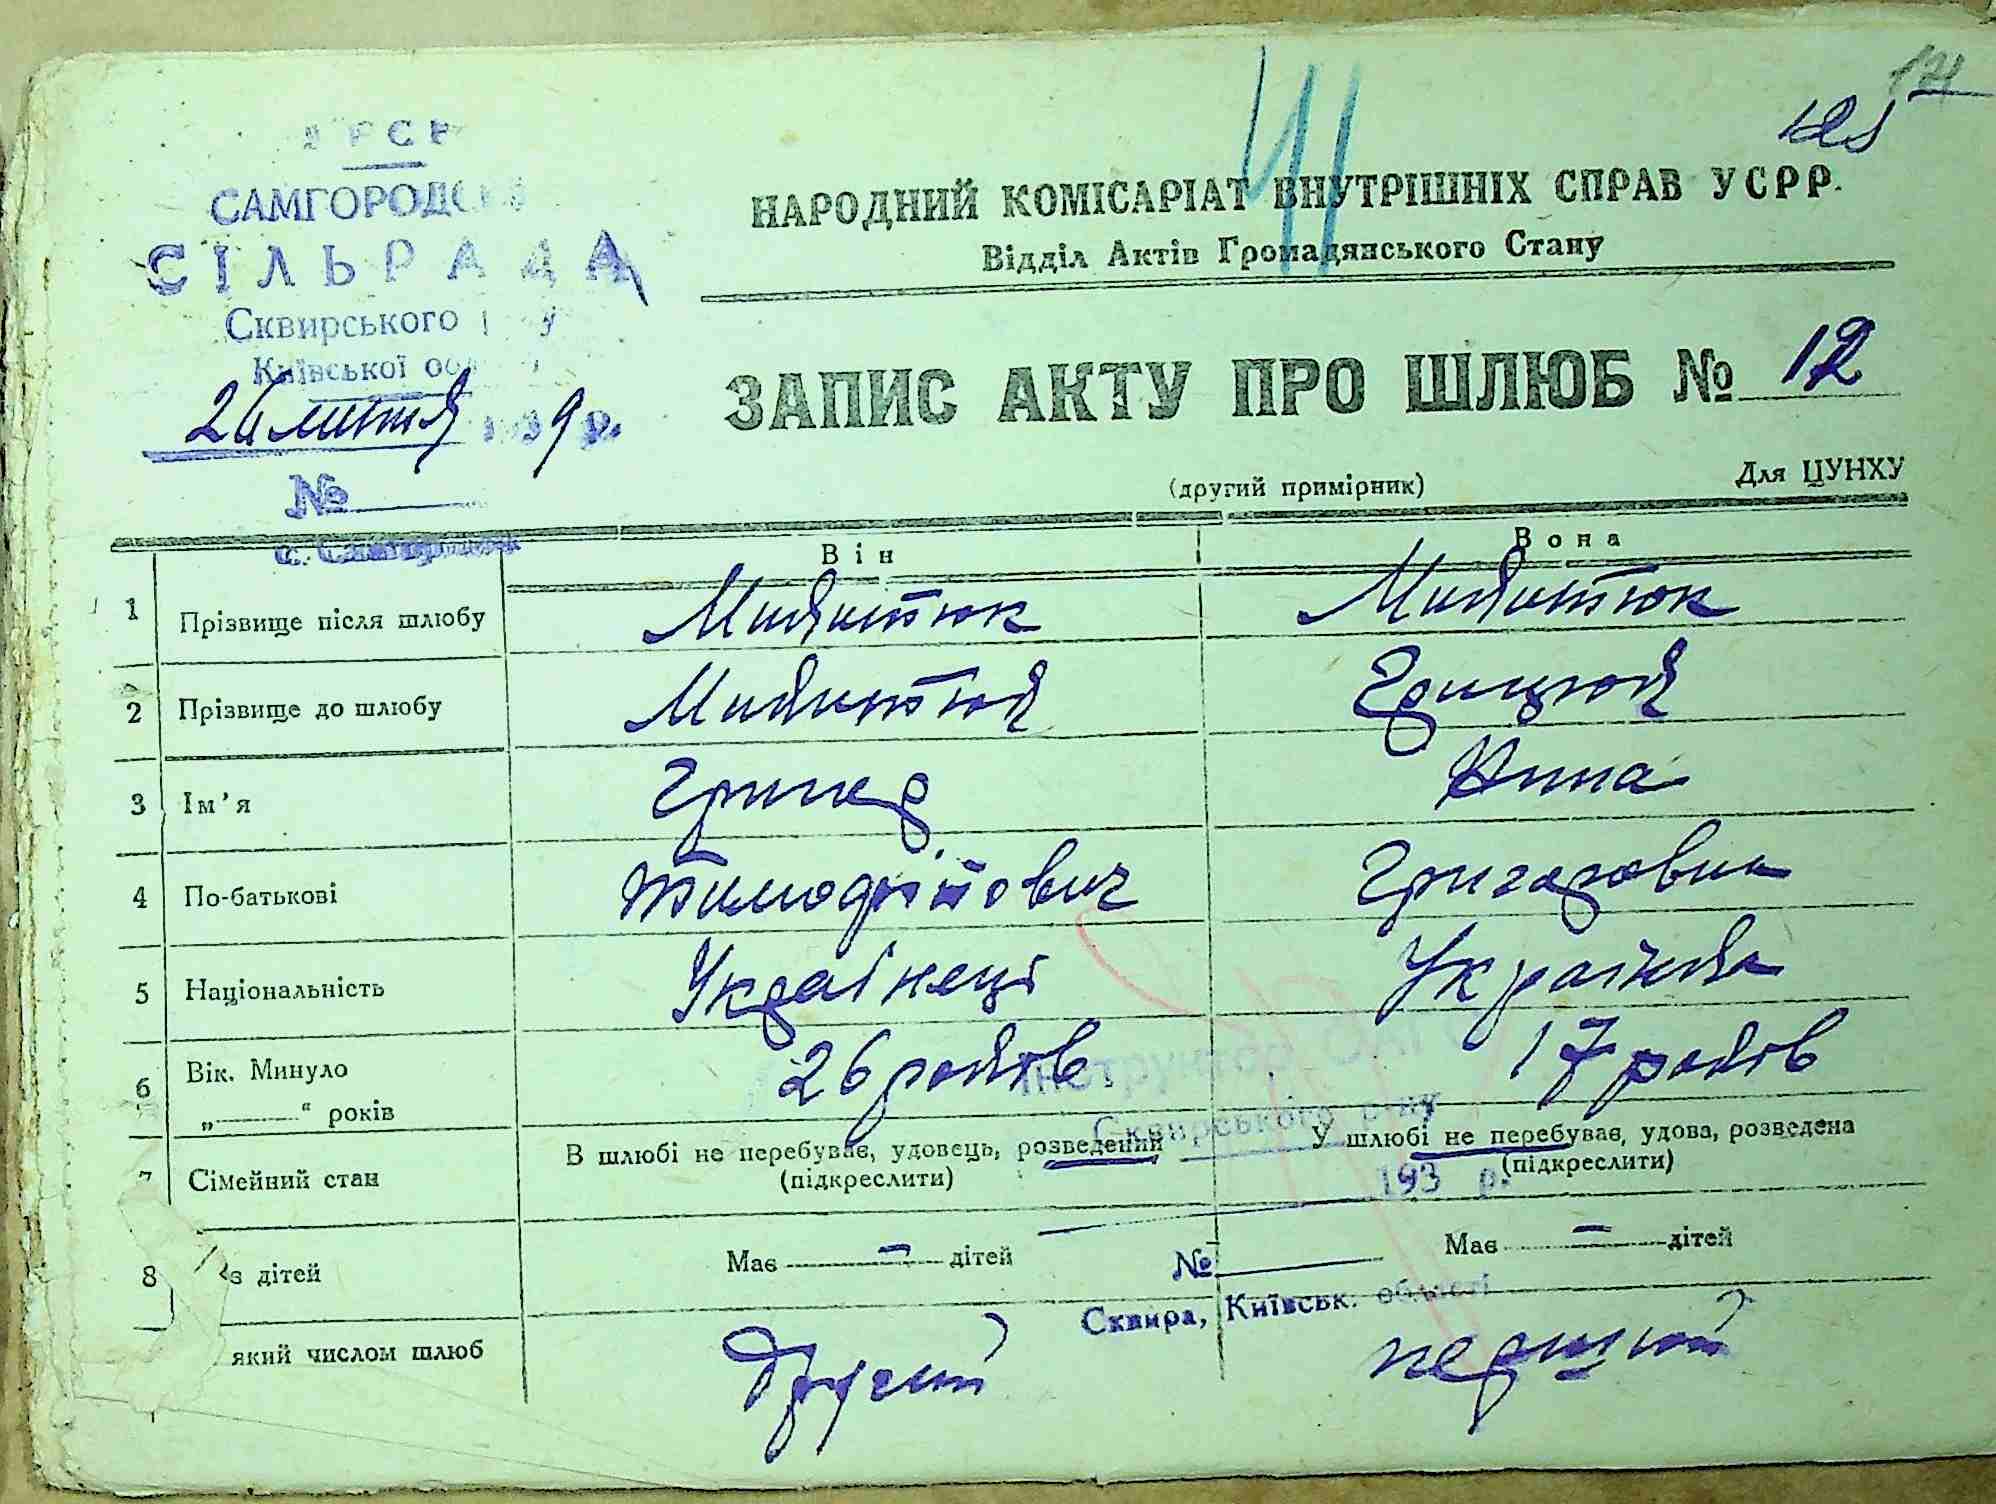 УРСР
САМГОРОДСЬКА
СІЛЬРАДА
Сквирського р-ну
Київської обл.
26 лютня 1939 р.
№
с. Самгородок
125
НАРОДНИЙ КОМІСАРІАТ ВНУТРІШНІХ СПРАВ УСРР.
Відділ Актів Громадянського Стану
ЗАПИС АКТУ ПРО ШЛЮБ № 12
(другий примірник) Для ЦУНХУ
Він Вона
1 Прізвище після шлюбу Микитюк Микитюк
2 Прізвище до шлюбу Микитюк Грицюк
3 Ім'я Григор Нина
4 По-батькові Тимофійович Григоровна
5 Національність Українець Українка
6 Вік. Минуло „ “ років 26 років 17 років
7 Сімейний стан В шлюбі не перебував, удовець, розведений (підкреслити) У шлюбі не перебуває, удова, розведена (підкреслити)
8 дітей Має — дітей Має — дітей
який числом шлюб Другий первий
Інструктор ОАГС
Сквирського р-ну
193 р.
№
Сквира, Київськ. області